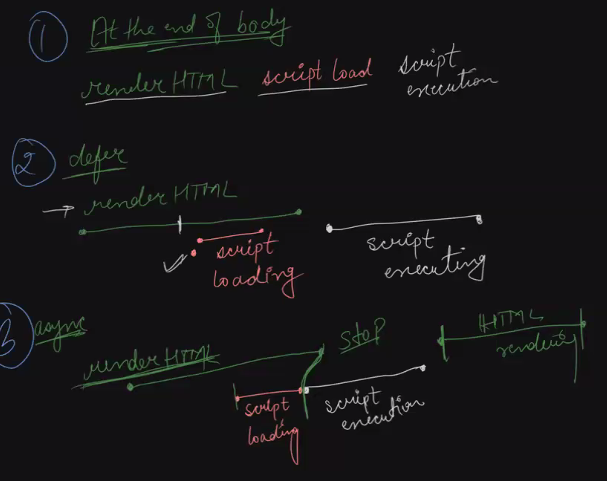 1 At the end of body
render HTML script load script execution
2 defer
→ render HTML
script loading
script executing
3 async
render HTML
STOP
HTML rendering
script loading
script execution